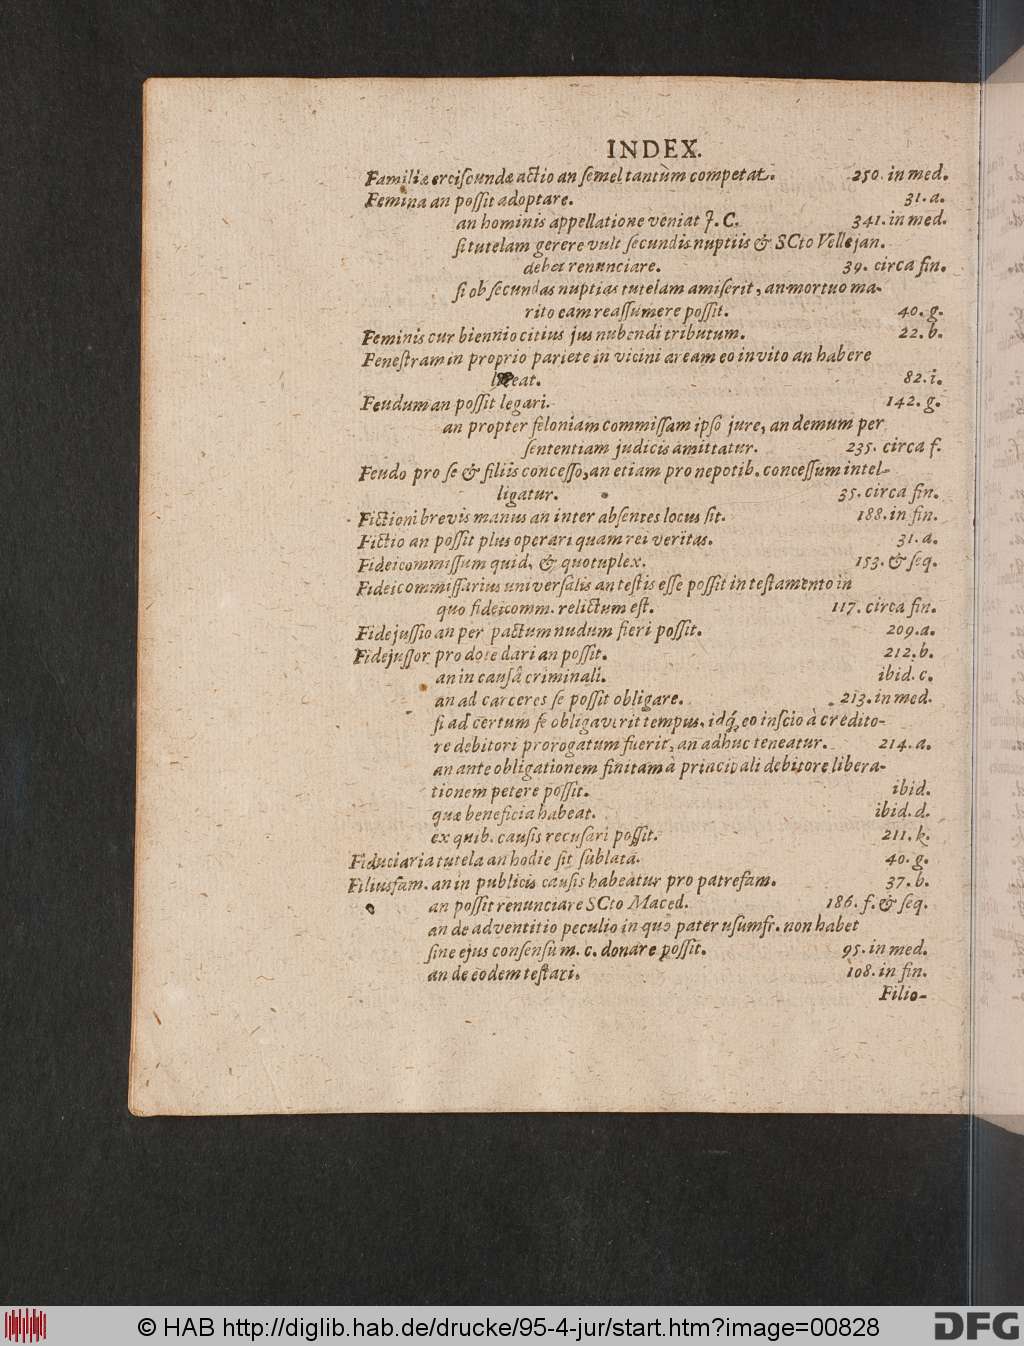 INDEX.
Familiæ erciscundæ actio an semel tantùm competat. 250. in med.
Femina an possit adoptare. 31. a.
an hominis appellatione veniat J. C. 341. in med.
si tutelam gerere vult secundis nuptiis & SCto Vellejan.
debet renunciare. 39. circa fin.
si ob secundas nuptias tutelam amiserit, an mortuo ma-
rito eam reassumere possit. 40. g.
Feminis cur biennio citius jus nubendi tributum. 22. b.
Fenestram in proprio pariete in vicini aream eo invito an habere
liceat. 82. i.
Feudum an possit legari. 142. g.
an propter feloniam commissam ipso jure, an demum per
sententiam judicis amittatur. 235. circa f.
Feudo pro se & filiis concesso, an etiam pro nepotib. concessum intel-
ligatur. 35. circa fin.
Fictioni brevis manus an inter absentes locus sit. 188. in fin.
Fictio an possit plus operari quam rei veritas. 31. a.
Fideicommissum quid, & quotuplex. 153. & seq.
Fideicommissarius universalis an testis esse possit in testamento in
quo fideicomm. relictum est. 117. circa fin.
Fidejussio an per pactum nudum fieri possit. 209. a.
Fidejussor pro dote dari an possit. 212. b.
an in causâ criminali. ibid. c.
an ad carceres se possit obligare. 213. in med.
si ad certum se obligaverit tempus, idq́; eo inscio à credito-
re debitori prorogatum fuerit, an adhuc teneatur. 214. a.
an ante obligationem finitam à principali debitore libera-
tionem petere possit. ibid.
quæ beneficia habeat. ibid. d.
ex quib. causis recusari possit. 211. k.
Fiduciaria tutela an hodie sit sublata. 40. g.
Filiusfam. an in publicis causis habeatur pro patrefam. 37. b.
an possit renunciare SCto Maced. 186. f. & seq.
an de adventitio peculio in quo pater usumfr. non habet
sine ejus consensu m. c. donare possit. 95. in med.
an de eodem testari. 108. in fin.
Filio-
© HAB http://diglib.hab.de/drucke/95-4-jur/start.htm?image=00828
DFG